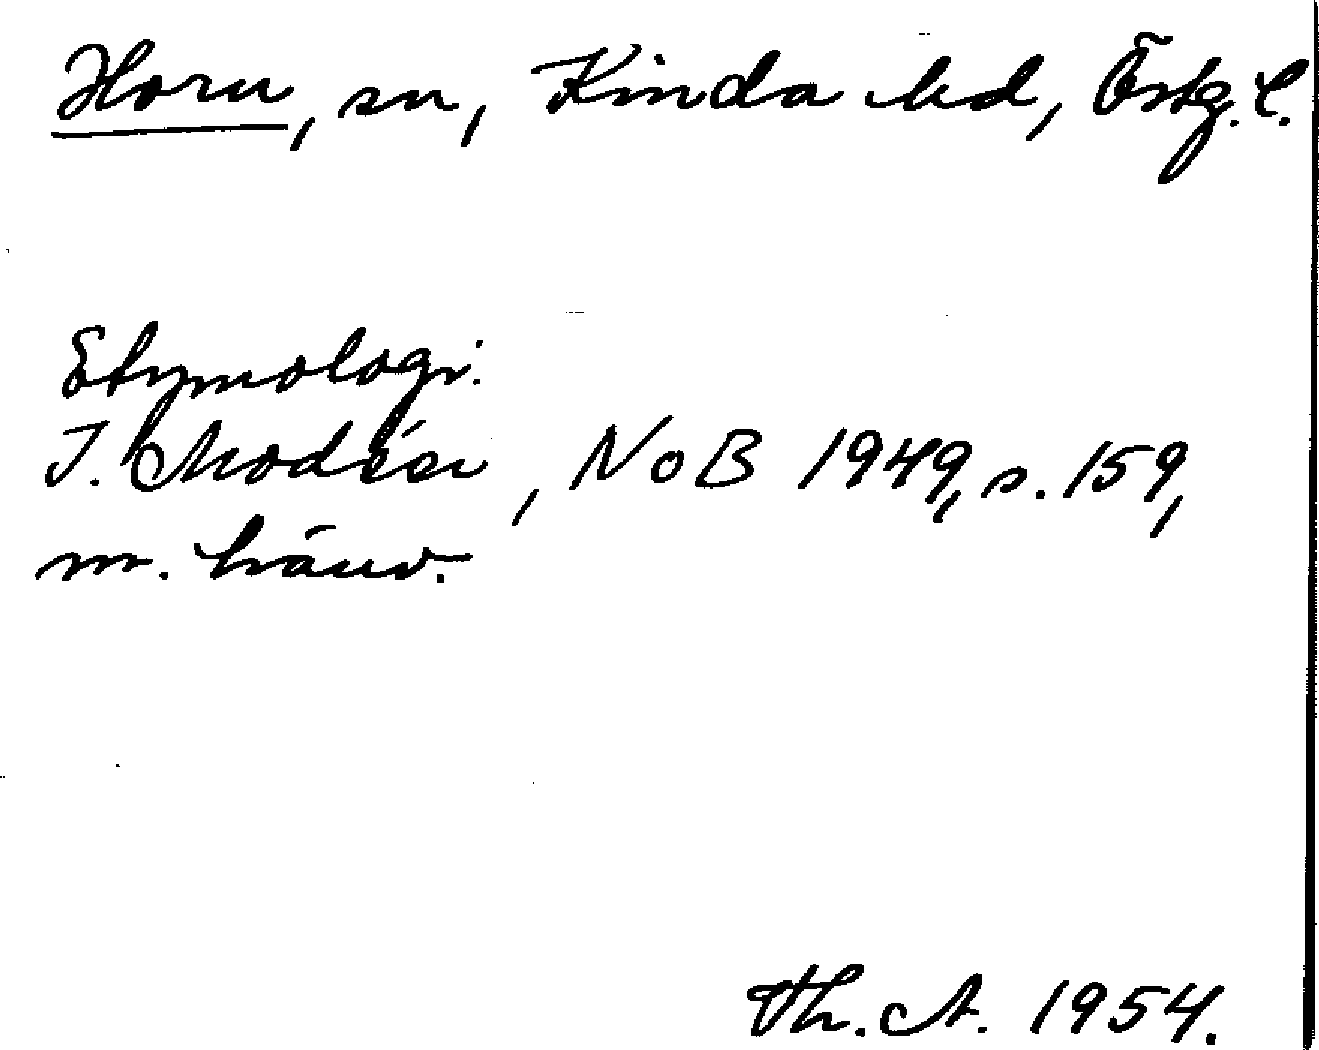 Horn, sn, Kinda hd, Östg. l.
Etymologi:
I. Modéer, NoB 1949, s. 159,
m. hänv.
Th. A. 1954.